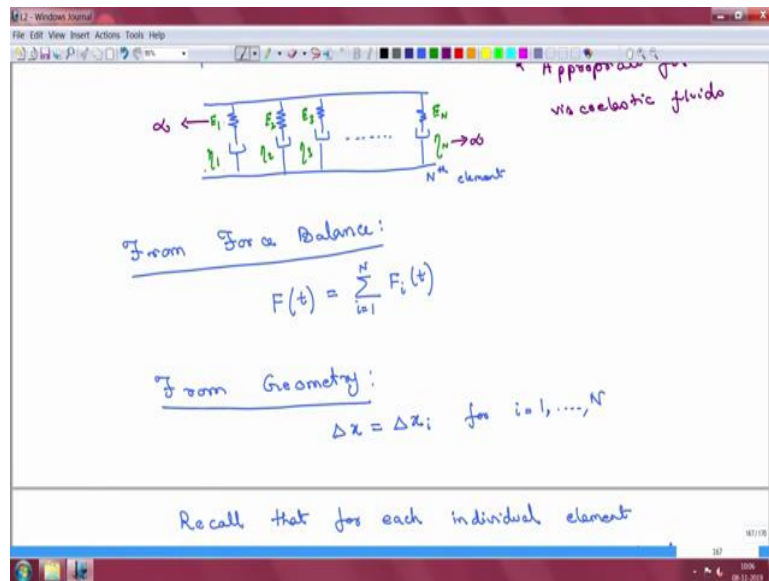 L2 - Windows Journal
File Edit View Insert Actions Tools Help
* Appropriate for
viscoelastic fluids
α ← E1 E2 E3 ....... EN
η1 η2 η3 ηN → α
Nth element
From Force Balance:
F(t) = Σ_{i=1}^{N} Fi(t)
From Geometry:
Δx = Δxi for i=1,....,N
Recall that for each individual element
167/170
167
10:06
08-11-2019